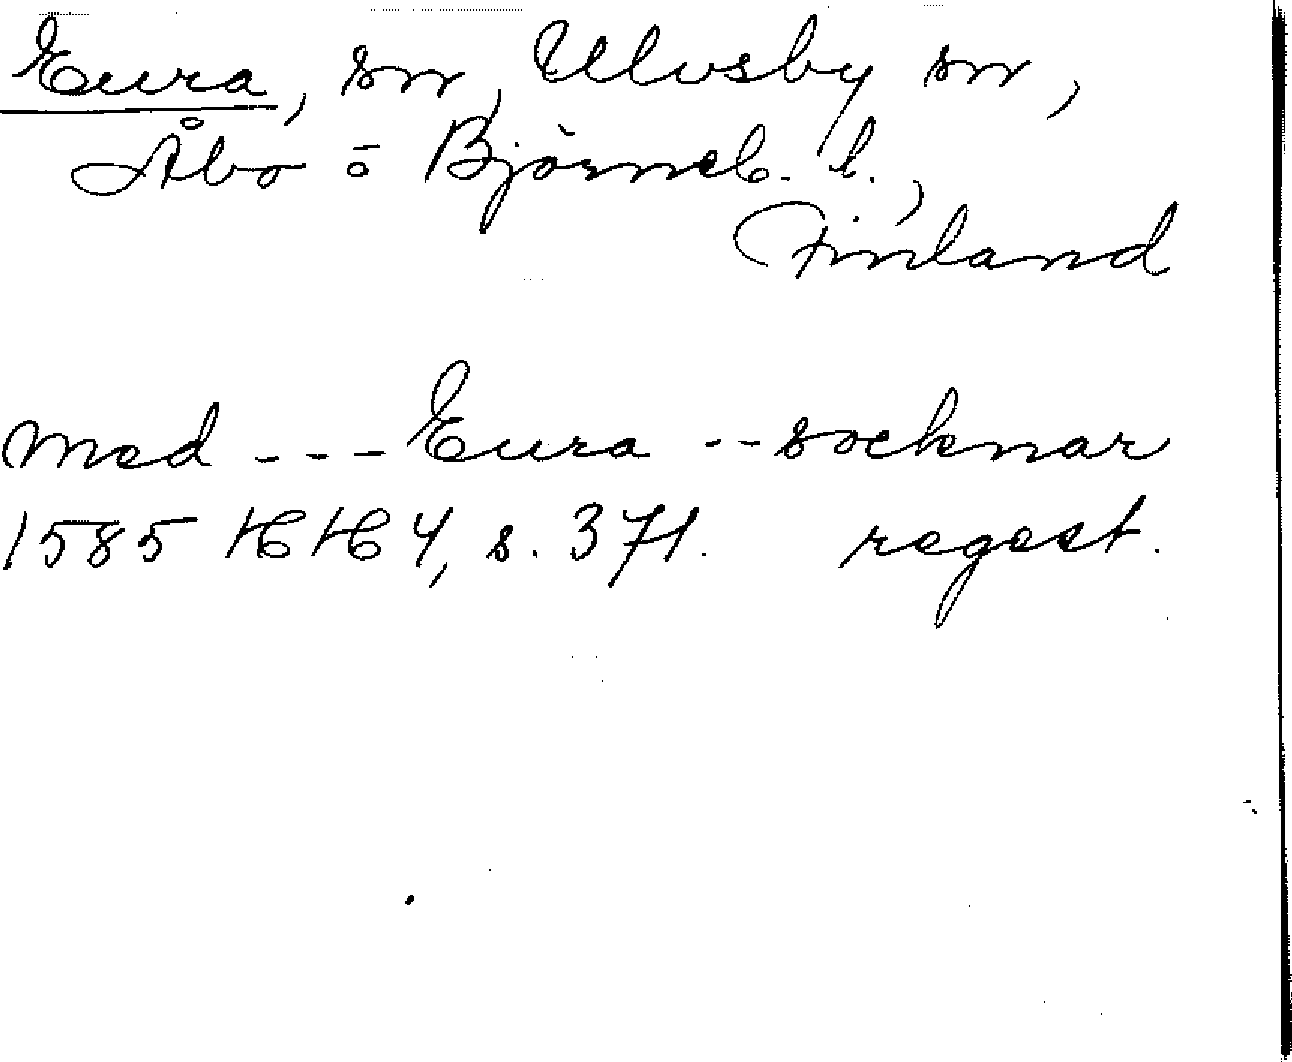 Eura, sn, Ulvsby sn,
Åbo o Björneb. l.,
Finland
med --- Eura -- socknar
1585 HH 4, s. 371. regest.